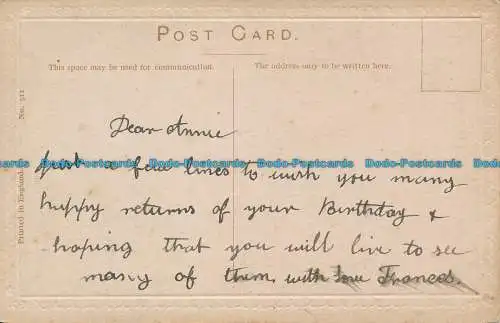 POST CARD.
This space may be used for communication.
The address only to be written here.
Printed in England.
No. 512
Dear Annie
just a few lines to wish you many
happy returns of your Birthday &
hoping that you will live to see
many of them. with love Frances.
Dodo-Postcards Dodo-Postcards Dodo-Postcards Dodo-Postcards